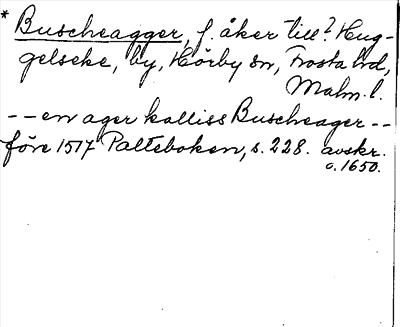 * Buscheagger, f. åker till? Hug-
gelseke, by, Hörby sn, Frosta hd,
Malm. l.
-- en ager kalliss Buscheager --
före 1517 Palteboken, s. 228. avskr.
c. 1650.